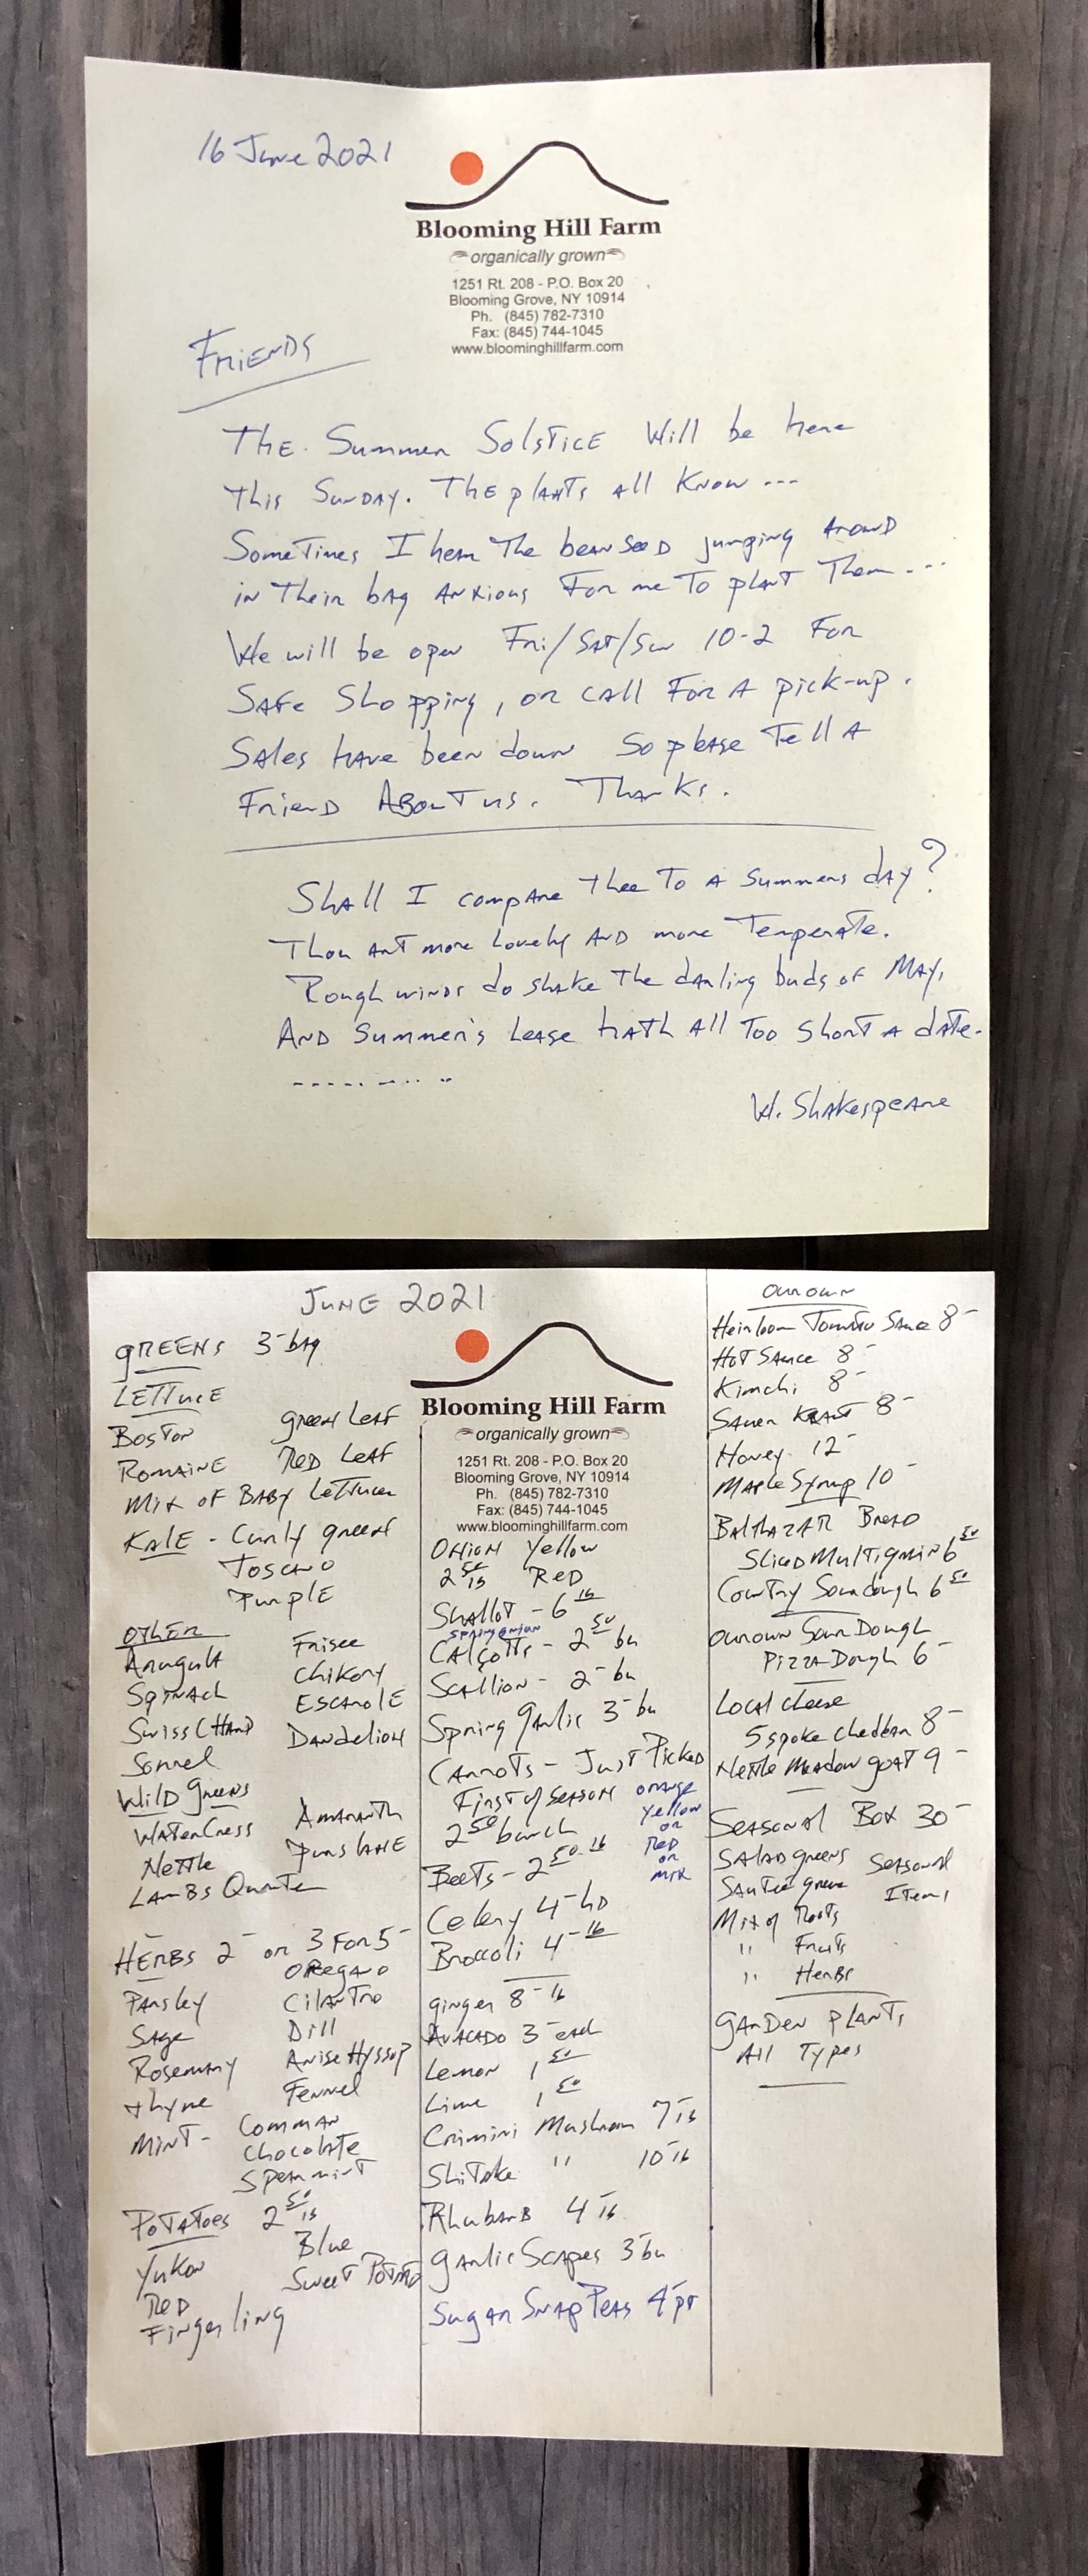 16 June 2021
Blooming Hill Farm
organically grown
1251 Rt. 208 - P.O. Box 20
Blooming Grove, NY 10914
Ph. (845) 782-7310
Fax: (845) 744-1045
www.bloominghillfarm.com
Friends
The Summer Solstice Will be here
this Sunday. The plants all Know ---
Sometimes I hear the bean seed jumping around
in their bag anxious for me to plant them ---
We will be open Fri/Sat/Sun 10-2 For
Safe Shopping, or call For a pick-up.
Sales have been down so please tell a
Friend About us. Thanks.
Shall I compare thee to a summers day?
Thou art more lovely and more temperate.
Rough winds do shake the darling buds of May,
And summer's lease hath all too short a date-
W. Shakespeare
June 2021
Blooming Hill Farm
organically grown
1251 Rt. 208 - P.O. Box 20
Blooming Grove, NY 10914
Ph. (845) 782-7310
Fax: (845) 744-1045
www.bloominghillfarm.com
Greens 3- bag
Lettuce
Boston Green Leaf
Romaine Red Leaf
Mix of Baby Lettuce
Kale - Curly green
Toscano
Purple
Other
Arugula Frisee
Spinach Chikory
Swiss Chard Escarole
Sorrel Dandelion
Wild Greens
Watercress Amaranth
Nettle Purslane
Lambs Quarter
Herbs 2- or 3 for 5-
Oregano
Parsley Cilantro
Sage Dill
Rosemary Anise Hyssop
thyme Fennel
Mint - Common
Chocolate
Spearmint
Potatoes 2 50 lb
Yukon Blue
Red Sweet Potato
Fingerling
Onion Yellow
2 50 lb Red
Shallot - 6 lb
spring onion
Calçotts - 2 50 bu
Scallion - 2- bu
Spring Garlic 3- bu
Carrots - Just Picked
First of season orange
yellow
or
Red
or
mix
2 50 bunch
Beets - 2 50 lb
Celery 4- hd
Broccoli 4- lb
ginger 8- lb
Avacado 3- each
Lemon 1 50
Lime 1 50
Crimini Mushroom 7 lb
Shitake " 10 lb
Rhubarb 4 lb
Garlic Scapes 3 bu
Sugar Snap Peas 4 pt
Our own
Heirloom Tomato Sauce 8-
Hot Sauce 8-
Kimchi 8-
Sauer Kraut 8-
Honey 12-
Maple Syrup 10-
Balthazar Bread
Sliced Multigrain 6 50
Country Sourdough 6 50
Our own Sour Dough
Pizza Dough 6-
Local cheese
5 spoke cheddar 8-
Nettle Meadow goat 9-
Seasonal Box 30-
Salad greens Seasonal
Sautee greens Items
Mix of Roots
" Fruits
" Herbs
Garden plants
All Types